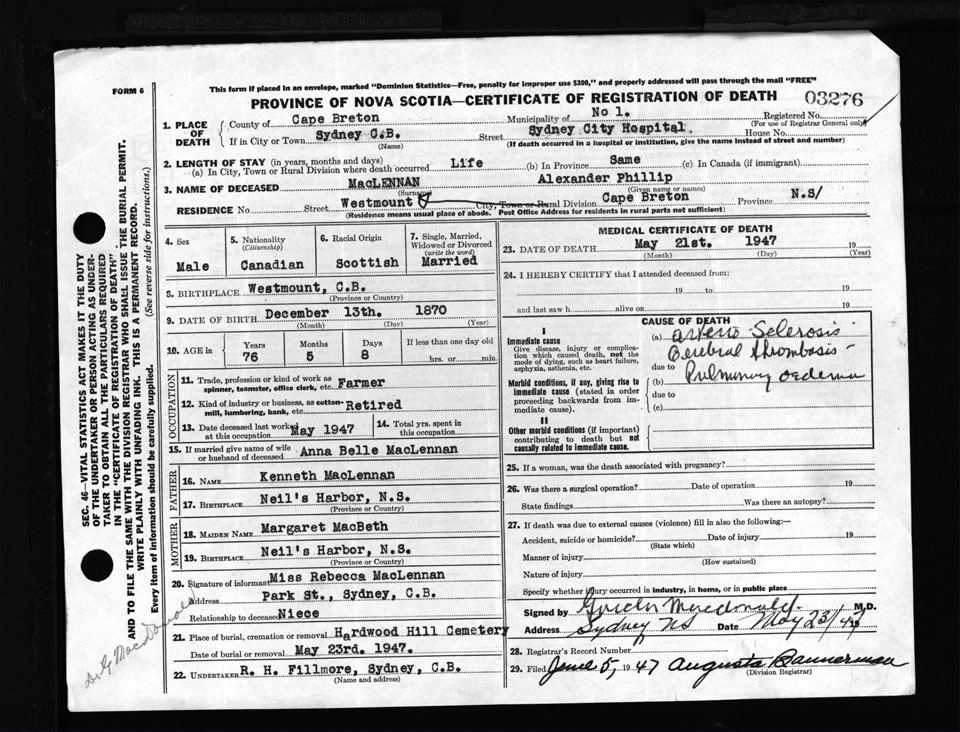 This form if placed in an envelope, marked "Dominion Statistics—Free, penalty for improper use $300," and properly addressed will pass through the mail "FREE"
FORM 6
PROVINCE OF NOVA SCOTIA—CERTIFICATE OF REGISTRATION OF DEATH 03276
1. PLACE OF DEATH
County of Cape Breton Municipality of No 1. Registered No.
(For use of Registrar General only)
If in City or Town Sydney C.B. Street Sydney City Hospital. House No.
(Name) (If death occurred in a hospital or institution, give the name instead of street and number)
2. LENGTH OF STAY (in years, months and days)
(a) In City, Town or Rural Division where death occurred Life (b) In Province Same (c) In Canada (if immigrant)
3. NAME OF DECEASED MacLENNAN Alexander Phillip
(Surname) (Given name or names)
RESIDENCE No. Street Westmount City, Town or Rural Division Cape Breton Province N.S/
(Residence means usual place of abode. Post Office Address for residents in rural parts not sufficient)
4. Sex
Male
5. Nationality
(Citizenship)
Canadian
6. Racial Origin
Scottish
7. Single, Married,
Widowed or Divorced
(write the word)
Married
8. BIRTHPLACE Westmount, C.B.
(Province or Country)
9. DATE OF BIRTH December 13th. 1870
(Month) (Day) (Year)
10. AGE in
Years Months Days If less than one day old
76 5 8 hrs. or min.
OCCUPATION
11. Trade, profession or kind of work as
spinner, teamster, office clerk, etc. Farmer
12. Kind of industry or business, as cotton-
mill, lumbering, bank, etc. Retired
13. Date deceased last worked
at this occupation May 1947
14. Total yrs. spent in
this occupation
15. If married give name of wife
or husband of deceased Anna Belle MacLennan
FATHER
16. NAME Kenneth MacLennan
17. BIRTHPLACE Neil's Harbor, N.S.
(Province or Country)
MOTHER
18. MAIDEN NAME Margaret MacBeth
19. BIRTHPLACE Neil's Harbor, N.S.
(Province or Country)
20. Signature of informant Miss Rebecca MacLennan
Address Park St., Sydney, C.B.
Relationship to deceased Niece
21. Place of burial, cremation or removal Hardwood Hill Cemetery
Date of burial or removal May 23rd. 1947.
22. UNDERTAKER R. H. Fillmore, Sydney, C.B.
(Name and address)
MEDICAL CERTIFICATE OF DEATH
23. DATE OF DEATH May 21st. 1947 19
(Month) (Day) (Year)
24. I HEREBY CERTIFY that I attended deceased from:
19 to 19
and last saw h alive on 19
I
Immediate cause
Give disease, injury or complica-
tion which caused death, not the
mode of dying, such as heart failure,
asphyxia, asthenia, etc.
Morbid conditions, if any, giving rise to
immediate cause (stated in order
proceeding backwards from im-
mediate cause).
II
Other morbid conditions (if important)
contributing to death but not
causally related to immediate cause.
CAUSE OF DEATH
(a) Arterio Sclerosis
Cerebral Thrombosis
due to
(b) Pulmonary oedema
due to
(c)
25. If a woman, was the death associated with pregnancy?
26. Was there a surgical operation? Date of operation 19
State findings Was there an autopsy?
27. If death was due to external causes (violence) fill in also the following:—
Accident, suicide or homicide? Date of injury 19
(State which)
Manner of injury
(How sustained)
Nature of injury
Specify whether injury occurred in industry, in home, or in public place
Signed by Macdonald. M.D.
Address Sydney NS Date May 23/47
28. Registrar's Record Number
29. Filed June 5, 1947 Augusta Bannerman
(Division Registrar)
SEC. 46—VITAL STATISTICS ACT MAKES IT THE DUTY
OF THE UNDERTAKER OR PERSON ACTING AS UNDER-
TAKER TO OBTAIN ALL THE PARTICULARS REQUIRED
IN THE "CERTIFICATE OF REGISTRATION OF DEATH"
AND TO FILE THE SAME WITH THE DIVISION REGISTRAR WHO SHALL ISSUE THE BURIAL PERMIT.
WRITE PLAINLY WITH UNFADING INK. THIS IS A PERMANENT RECORD.
Every item of information should be carefully supplied. (See reverse side for instructions.)
Dr G MacDonald